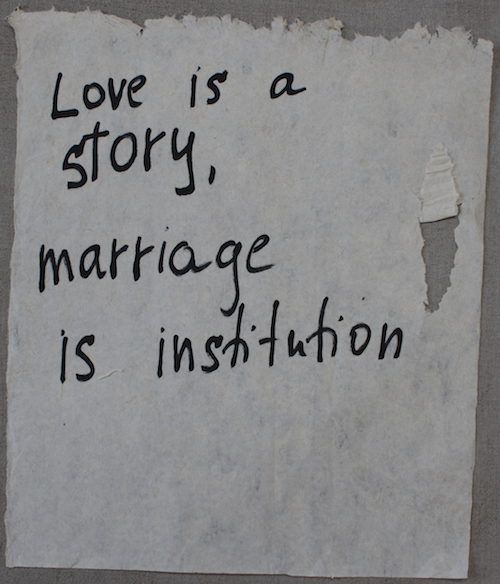 Love is a
story,
marriage
is institution